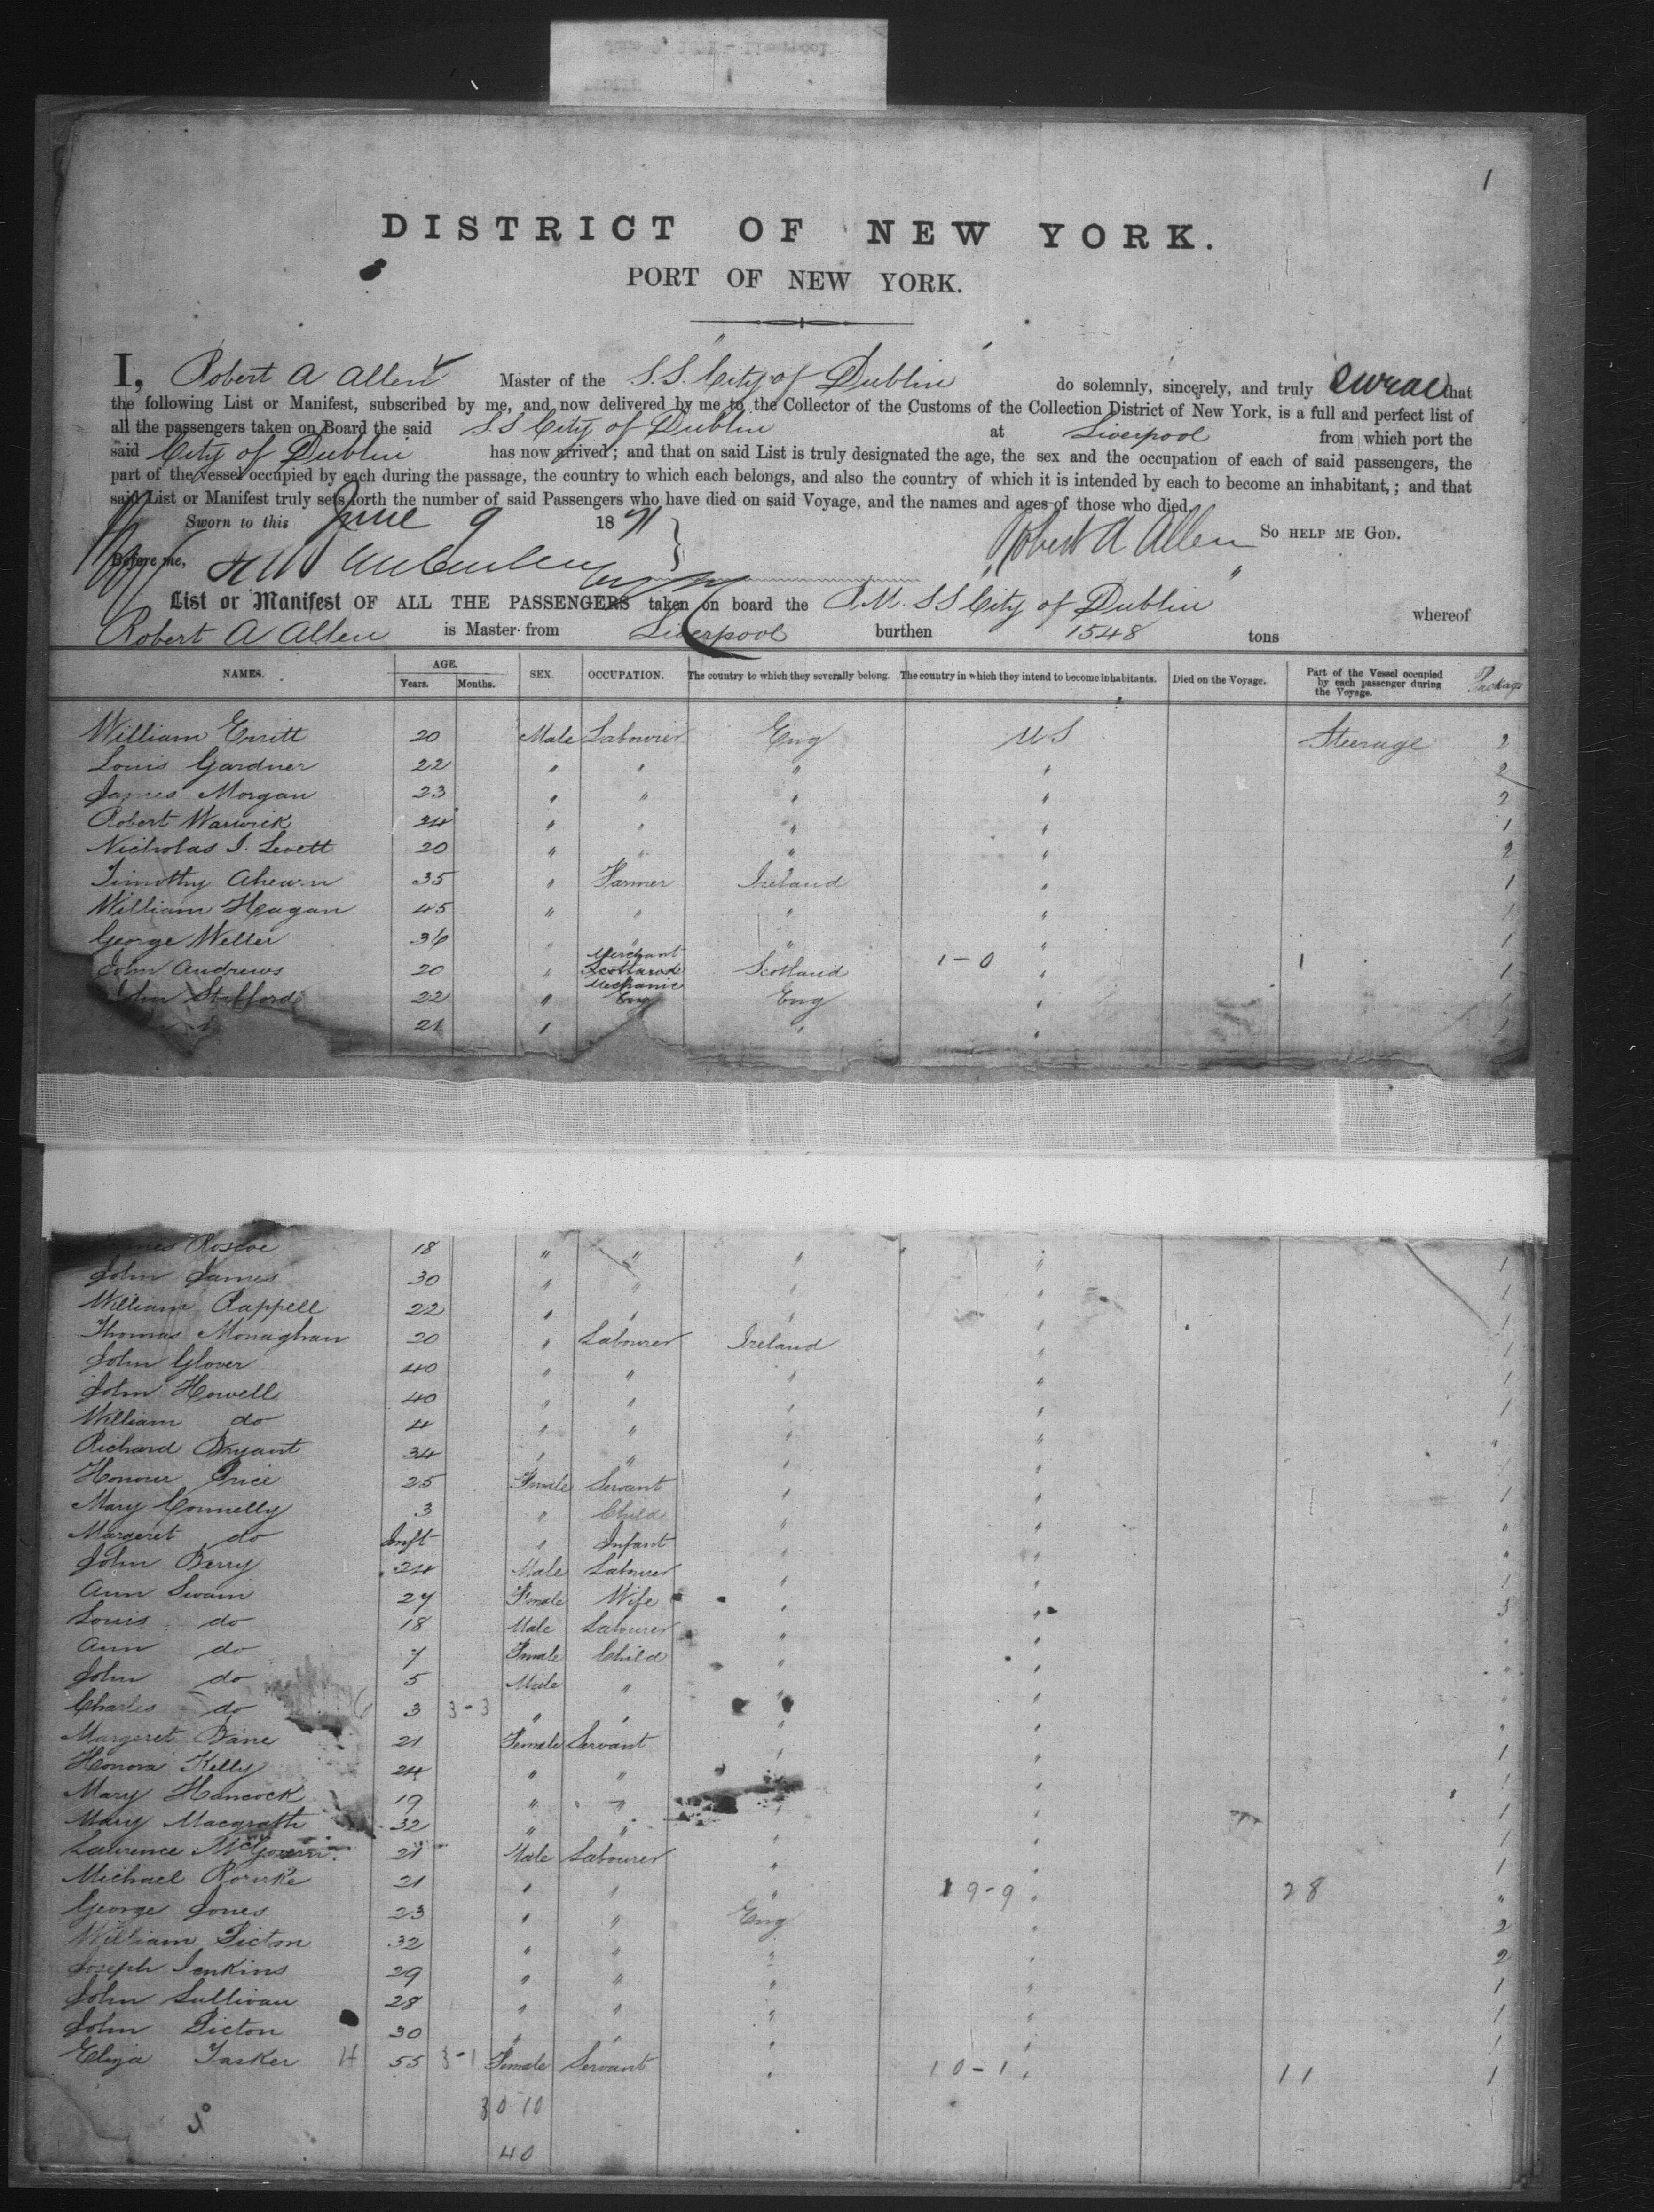 1
DISTRICT OF NEW YORK.
PORT OF NEW YORK.
I, Robert A Allen Master of the S.S. City of Dublin do solemnly, sincerely, and truly swear that
the following List or Manifest, subscribed by me, and now delivered by me to the Collector of the Customs of the Collection District of New York, is a full and perfect list of
all the passengers taken on Board the said SS City of Dublin at Liverpool from which port the
said City of Dublin has now arrived; and that on said List is truly designated the age, the sex and the occupation of each of said passengers, the
part of the vessel occupied by each during the passage, the country to which each belongs, and also the country of which it is intended by each to become an inhabitant,; and that
said List or Manifest truly sets forth the number of said Passengers who have died on said Voyage, and the names and ages of those who died.
Sworn to this June 9 1871 } Robert A Allen So HELP ME GOD.
Before me,
List or Manifest OF ALL THE PASSENGERS taken on board the R.M. SS City of Dublin whereof
Robert A Allen is Master from Liverpool burthen 1548 tons
NAMES. AGE. Years. Months. SEX. OCCUPATION. The country to which they severally belong. The country in which they intend to become inhabitants. Died on the Voyage. Part of the Vessel occupied by each passenger during the Voyage. Packages
William 20 Male Labourer Eng US Steerage 2
Louis Gardner 22 " " " " 2
James Morgan 23 " " " " 2
Robert Warwick 24 " " " " 1
Nicholas J. Levett 20 " " " " 2
Timothy Ahearn 35 " Farmer Ireland " 1
William Hagan 45 " " " " 1
George Weller 36 " " " " 1
John Andrews 20 " Merchant Scotland Scotland 1-0 " 1 1
John Stafford 22 " Mechanic Eng Eng " 1
21 " " " 1
James Roscoe 18 " " " " 1
John James 30 " " " " 1
William Rappell 22 " " " " 1
Thomas Monaghan 20 " Labourer Ireland " 1
John Glover 40 " " " " 1
John Howell 40 " " " " 1
William do 4 " " " " "
Richard Bryant 34 " " " " 1
Honour Price 25 Female Servant " " 1
Mary Connelly 3 " Child " " "
Margeret do Inft " Infant " " "
John Berry 24 Male Labourer " " 1
Ann Swain 27 Female Wife " " 3
Louis do 18 Male Labourer " " "
Ann do 7 Female Child " " "
John do 5 Male " " " "
Charles do 3 3-3 " " " " "
Margeret Bane 21 Female Servant " " 1
Honora Kelly 24 " " " " 1
Mary Hancock 19 " " " " 1
Mary Macgrath 32 " " " " 1
Lawrence 21 Male Labourer " " 1
Michael Rourke 21 " " " 19-9 " 28 "
George Jones 23 " " Eng " 2
William Picton 32 " " " " 2
Joseph Jenkins 29 " " " " 1
John Sullivan 28 " " " " 1
John Picton 30 " " " " 1
Eliza Tasker H 55 3-1 Female Servant " 10-1 " 11 1
30 10
40